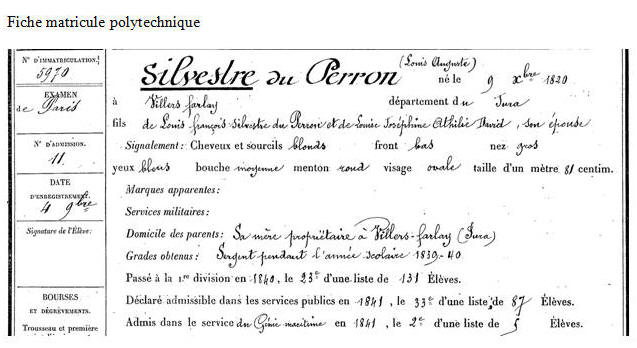 Fiche matricule polytechnique
N° D'IMMATRICULATION.
5970
EXAMEN
de Paris
N° D'ADMISSION.
11.
DATE
D'ENREGISTREMENT.
4 9bre
Signature de l'Élève:
BOURSES
ET DÉGRÈVEMENTS.
Trousseau et première
Silvestre du Perron (Louis Auguste) né le 9 Xbre 1820
à Villers farlay département du Jura
fils de Louis françois Silvestre du Perron et de Louise Joséphine Athilie David, son épouse
Signalement: Cheveux et sourcils blonds front bas nez gros
yeux bleus bouche moyenne menton rond visage ovale taille d'un mètre 81 centim.
Marques apparentes:
Services militaires:
Domicile des parents: Sa mère propriétaire à Villers-farlay (Jura)
Grades obtenus: Sergent pendant l'année scolaire 1839-40
Passé à la 1re division en 1840, le 23e d'une liste de 131 Élèves.
Déclaré admissible dans les services publics en 1841, le 33e d'une liste de 87 Élèves.
Admis dans le service du Génie maritime en 1841, le 2e d'une liste de 5 Élèves.